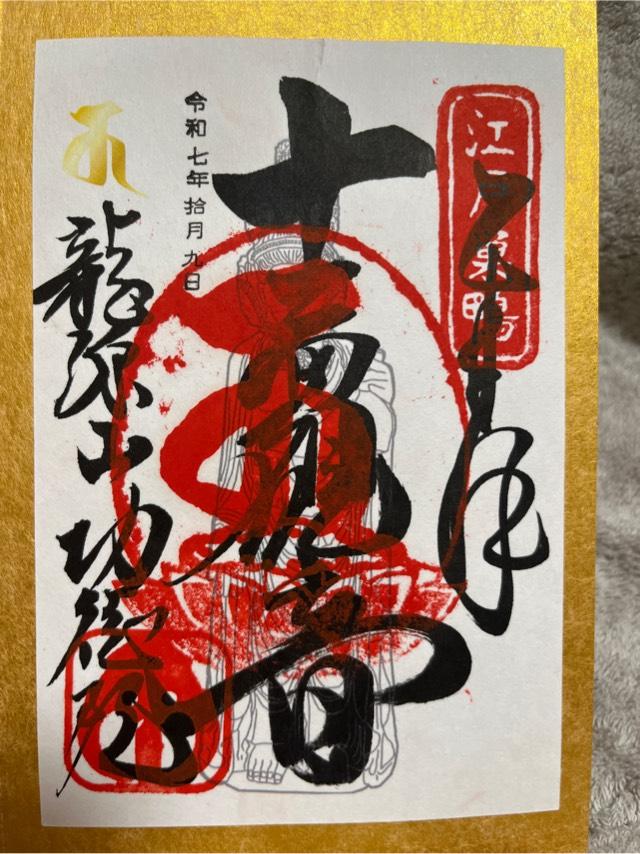 江戸巣鴨
十一面観音
令和七年拾月九日
龍源山功徳院